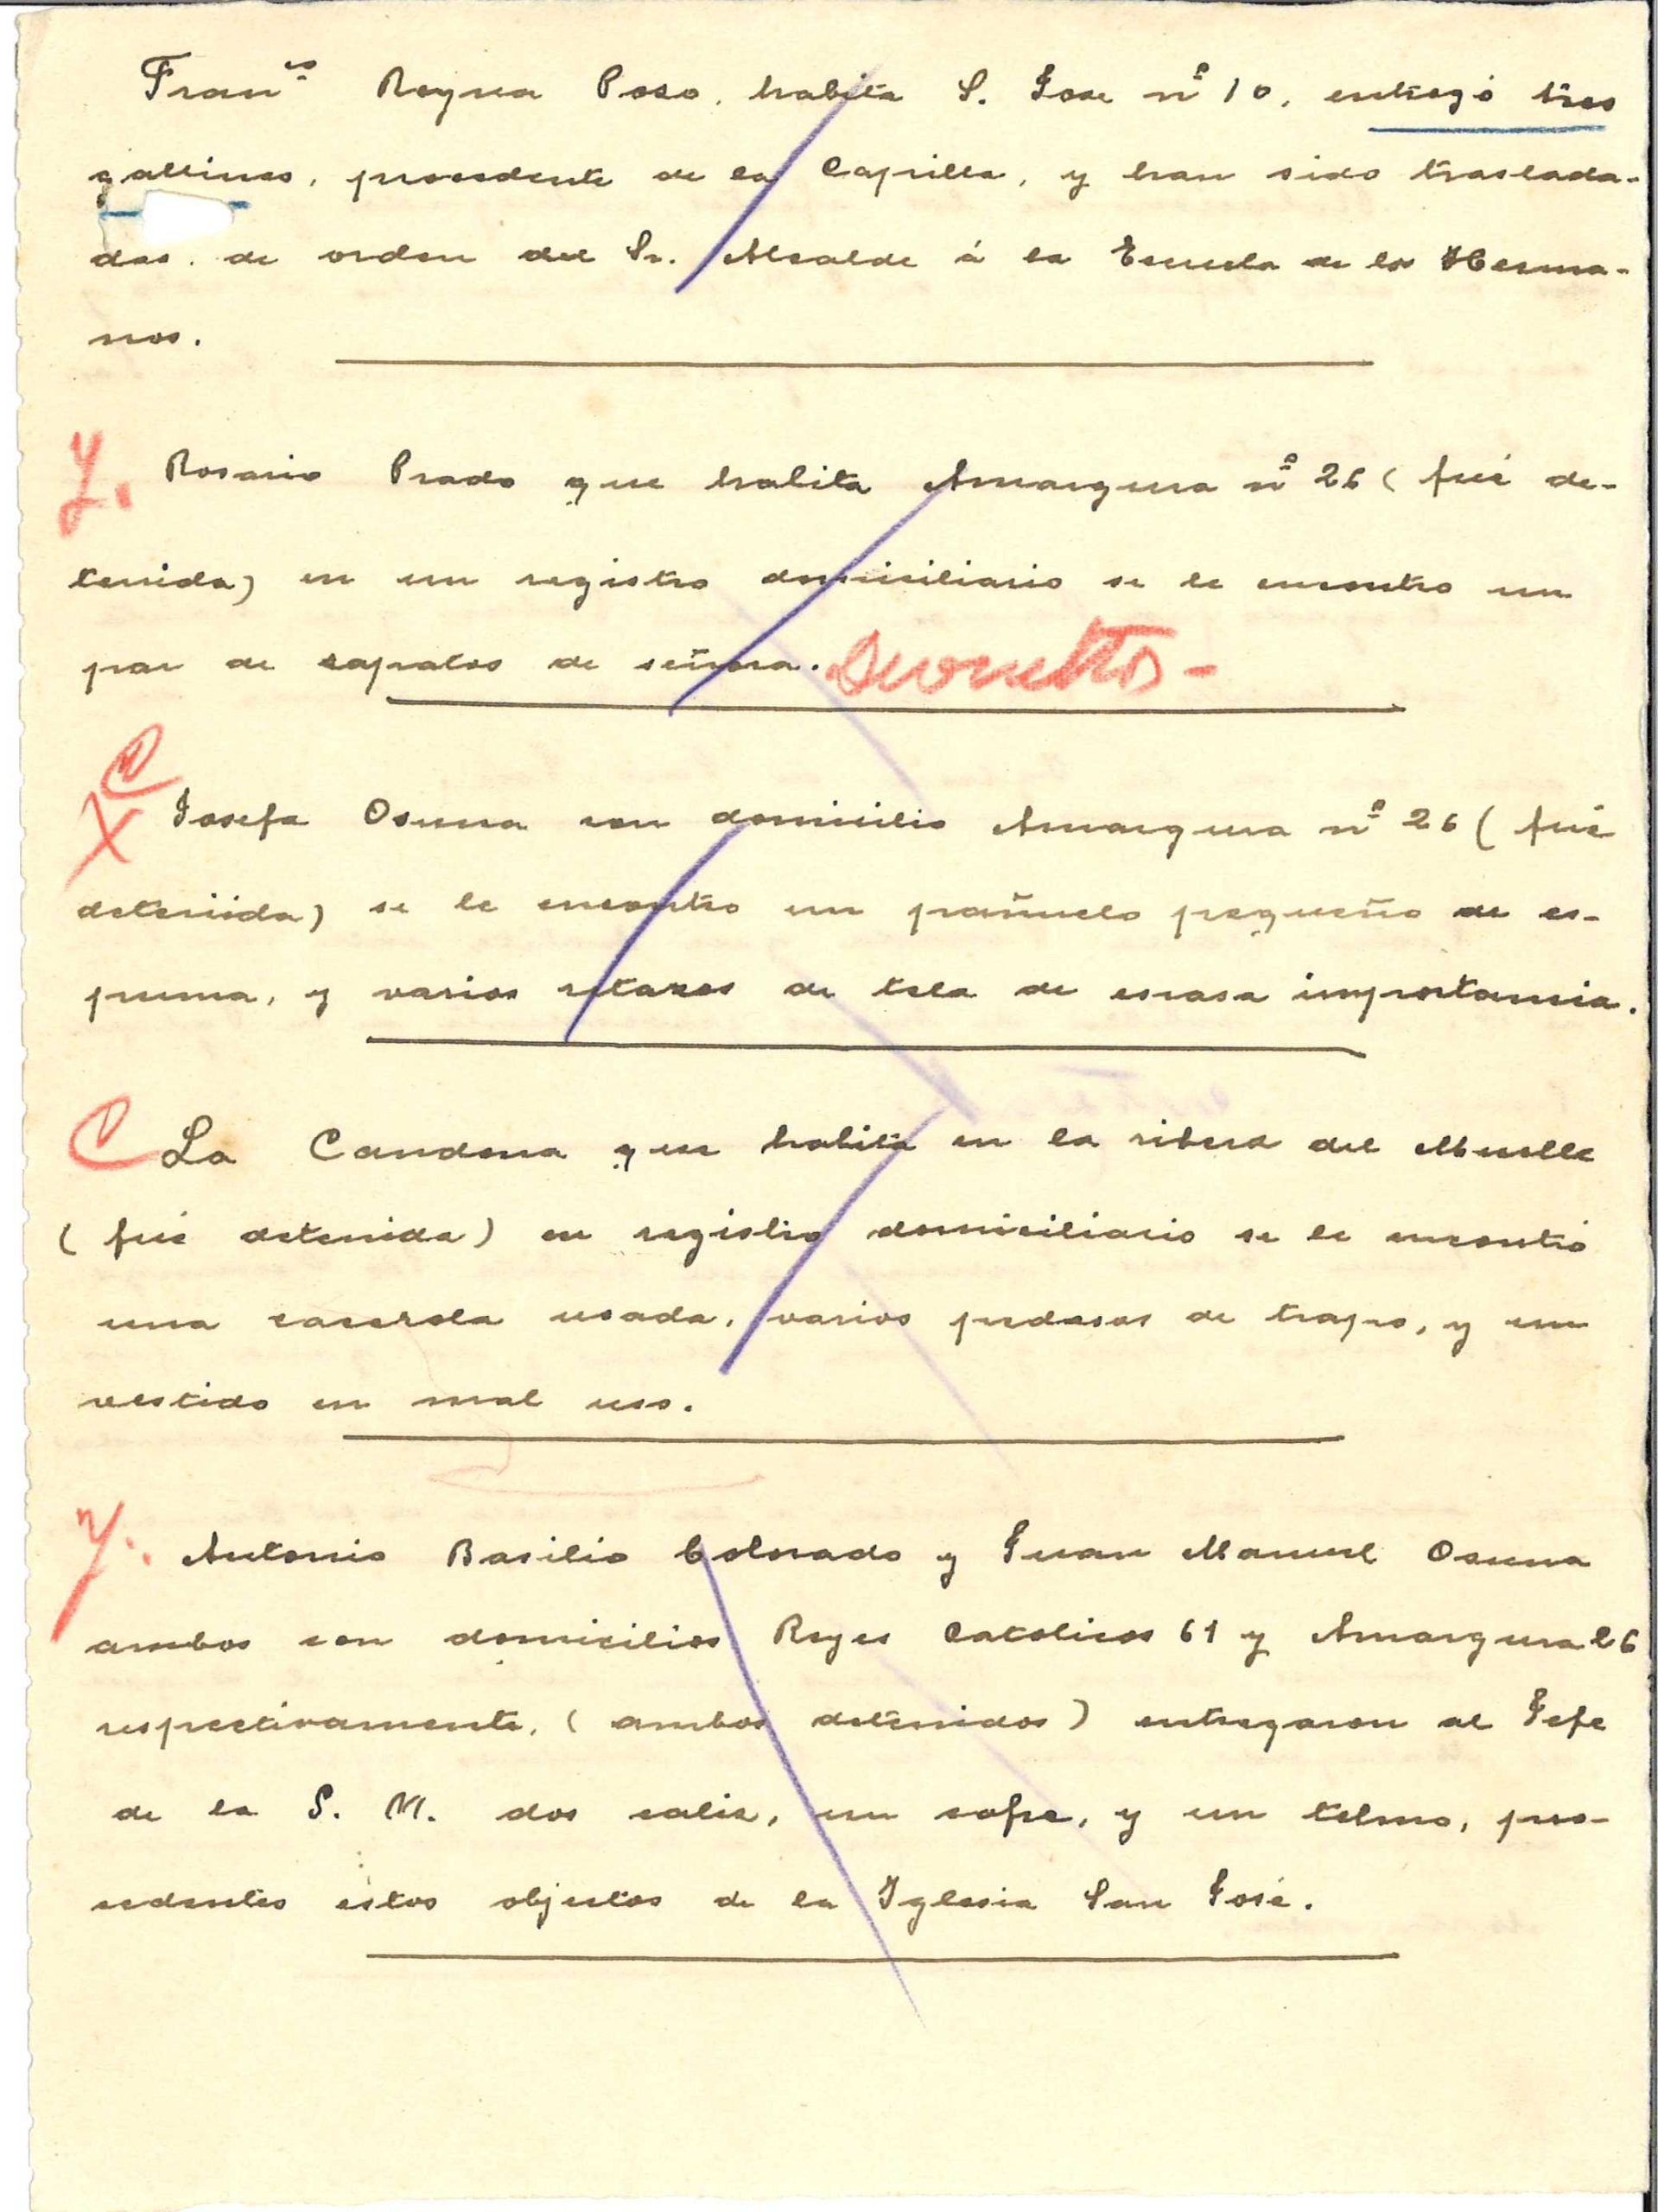 Fran.co Reyna Poso, habita S. Jose nº 10, entregó tres
gallinas, procedente de la Capilla, y han sido traslada-
das. de orden del Sr. Alcalde á la Escuela de los Herma-
nos.
Y. Rosario Prado que habita Amargura nº 26 ( fué de-
tenida) en un registro domiciliario se le encontro un
par de sapatos de señora.
C
X Josefa Osuna con domicilio Amargura nº 26 ( fué
detenida) se le encontro un pañuelo pequeño de es-
puma, y varios retazos de tela de escasa importancia.
C La Candona que habita en la ribera del Muelle
( fué detenida ) en registro domiciliario se le encontró
una caserola usada, varios pedasos de trapo, y un
vestido en mal uso.
y. Antonio Basilio Colorado y Juan Manuel Osuna
ambos con domicilios Reyes Catolicos 61 y Amargura 26
respectivamente, ( ambos detenidos ) entregaron al Jefe
de la S. M. dos caliz, un cofre, y un telmo, pro-
cedentes estos objectos de la Iglesia San José.